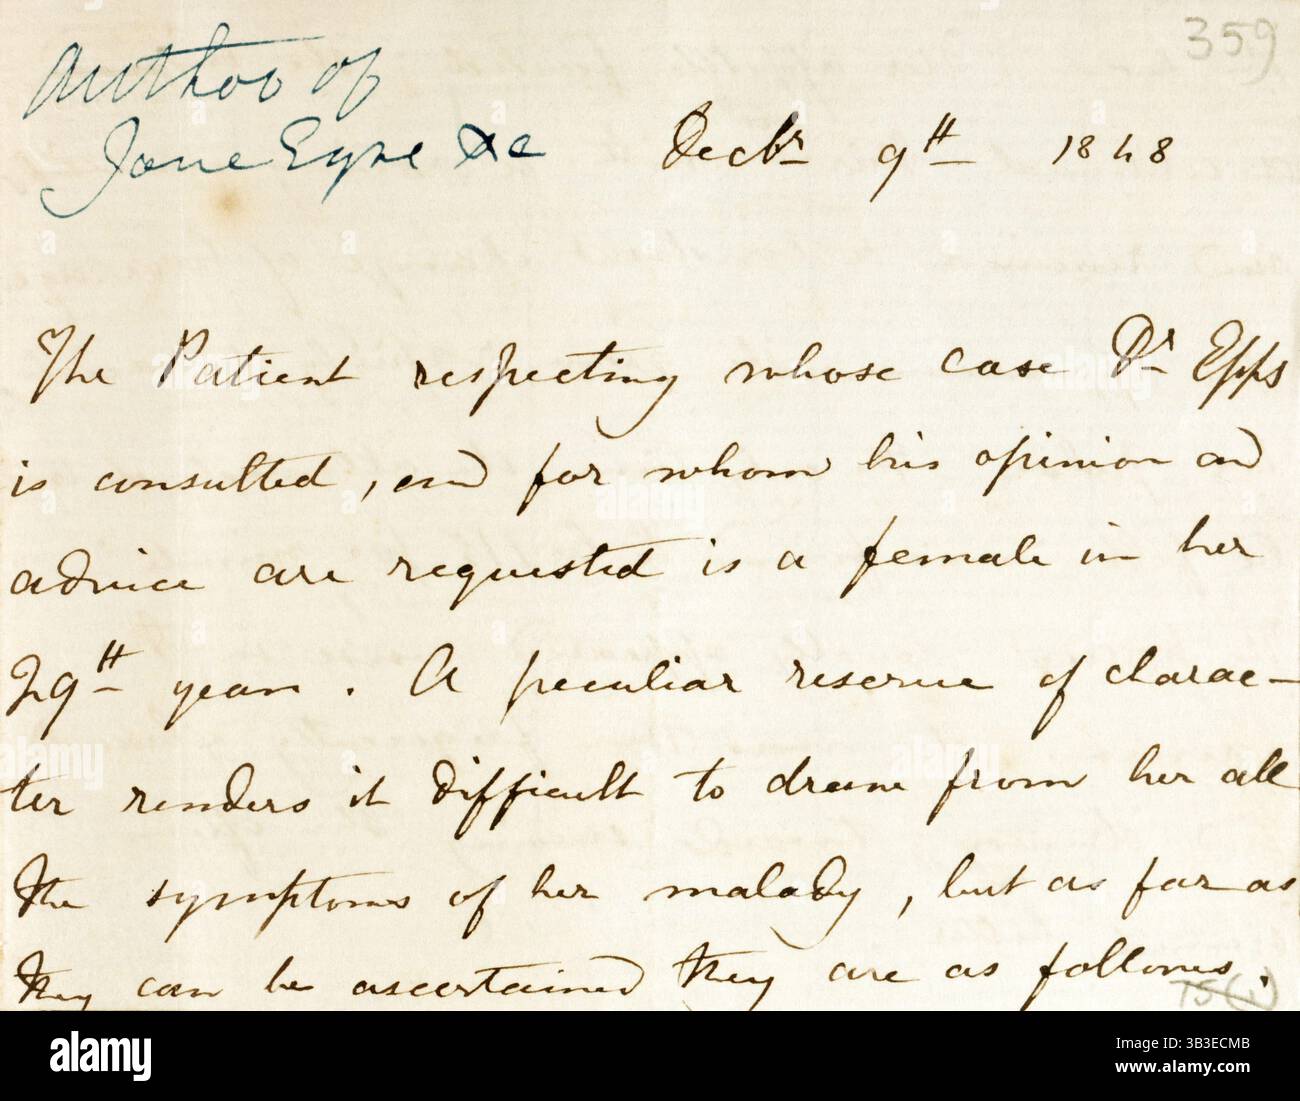 359
Author of
Jane Eyre &c
Decbr 9th 1848
The Patient respecting whose case Dr Epps
is consulted, and for whom his opinion and
advice are requested is a female in her
29th year. A peculiar reserve of charac-
ter renders it difficult to draw from her all
the symptoms of her malady, but as far as
they can be ascertained they are as follows.
75(1)
alamy
Image ID: 3B3ECMB
www.alamy.com